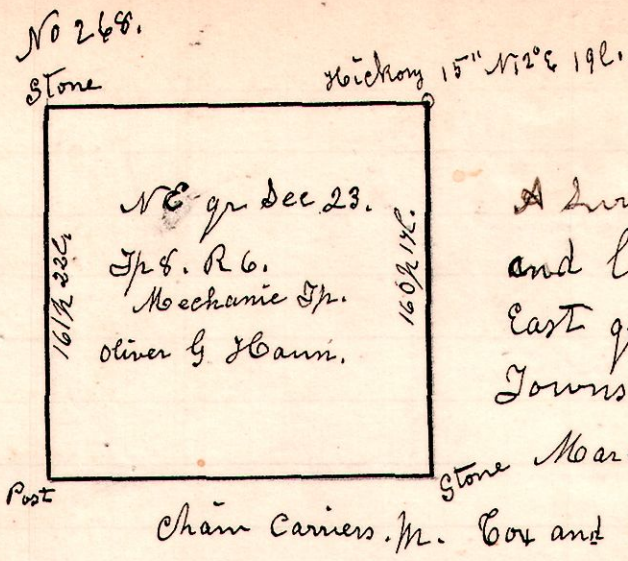 No 268.
Stone
Hickory 15" N12°E 19l.
NE qr Sec 23.
Tp 8. R 6.
Mechanic Tp.
Oliver G Haun.
161p 22l.
160p 17l.
A Sur
and l
East q
Towns
Post
Stone
Mar
Chain Carriers. M. Cox and